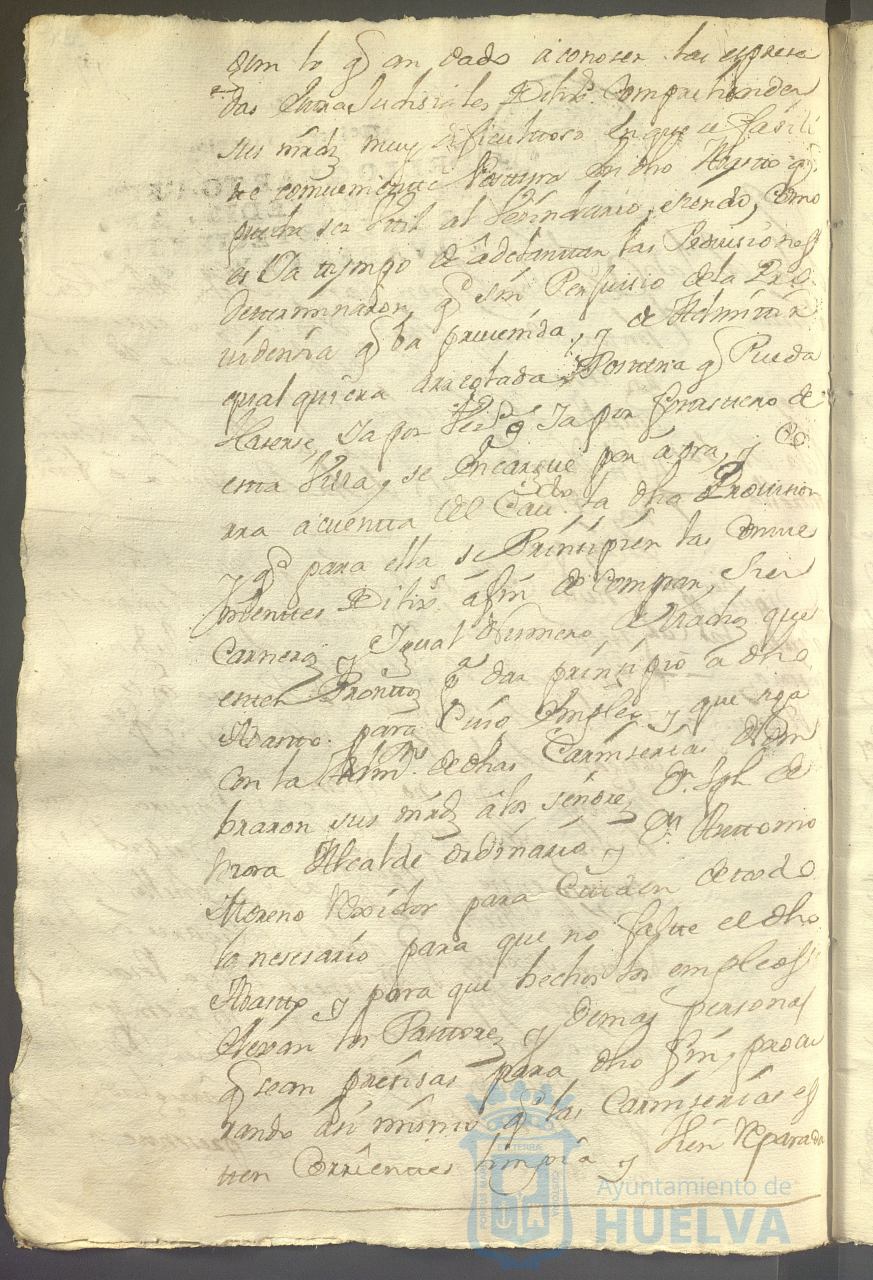 gun lo q an dado a conoser las espresa
das Juxa Judisiales Dilixs. Comprehenden
sus mrds muy dificultoso en que se fasili
te comueniente Postura en dho Abasto q.
pueda ser util al Vesindario, siendo, Como
es Ya tiempo de adelantar las Prouisiones
determinaron q. sin Perjuisio de la Pro
uidencia q ba preuenida, y de Admitir
qual quiera arreglada Postura q Pueda
Haserse, Ya por Vezo. Ya por forastero de
esta Villa, y se Encargue por aora, y Co
rra a cuenta del Cauildo la dha Prouision
y q. para ella se Prinsipien las Conue
nientes Dilixs. a fin de Comprar,
Carneros y Ygual Numero de Machos que
esten Promptos pa. dar prinsipio a dho
Abasto. para Cuio Empleo, y que rija
Con la Admon. de dhas Carniserias Nom
braron sus mrds a los señores Dn. Jph de
Mora Alcalde ordinario y Dn. Anttonio
Moreno Rexidor para Cuiden de todo
lo nesesario para que no falte el dho
Abasto y para que hechos los empleos
elexan los Pastores y demas personas
q sean presisas para dho fin, procu
rando asi mismo q. las Carniserias es
ten Corrientes limpia y bien Reparada
EN TERRA
Ayuntamiento de
HUELVA